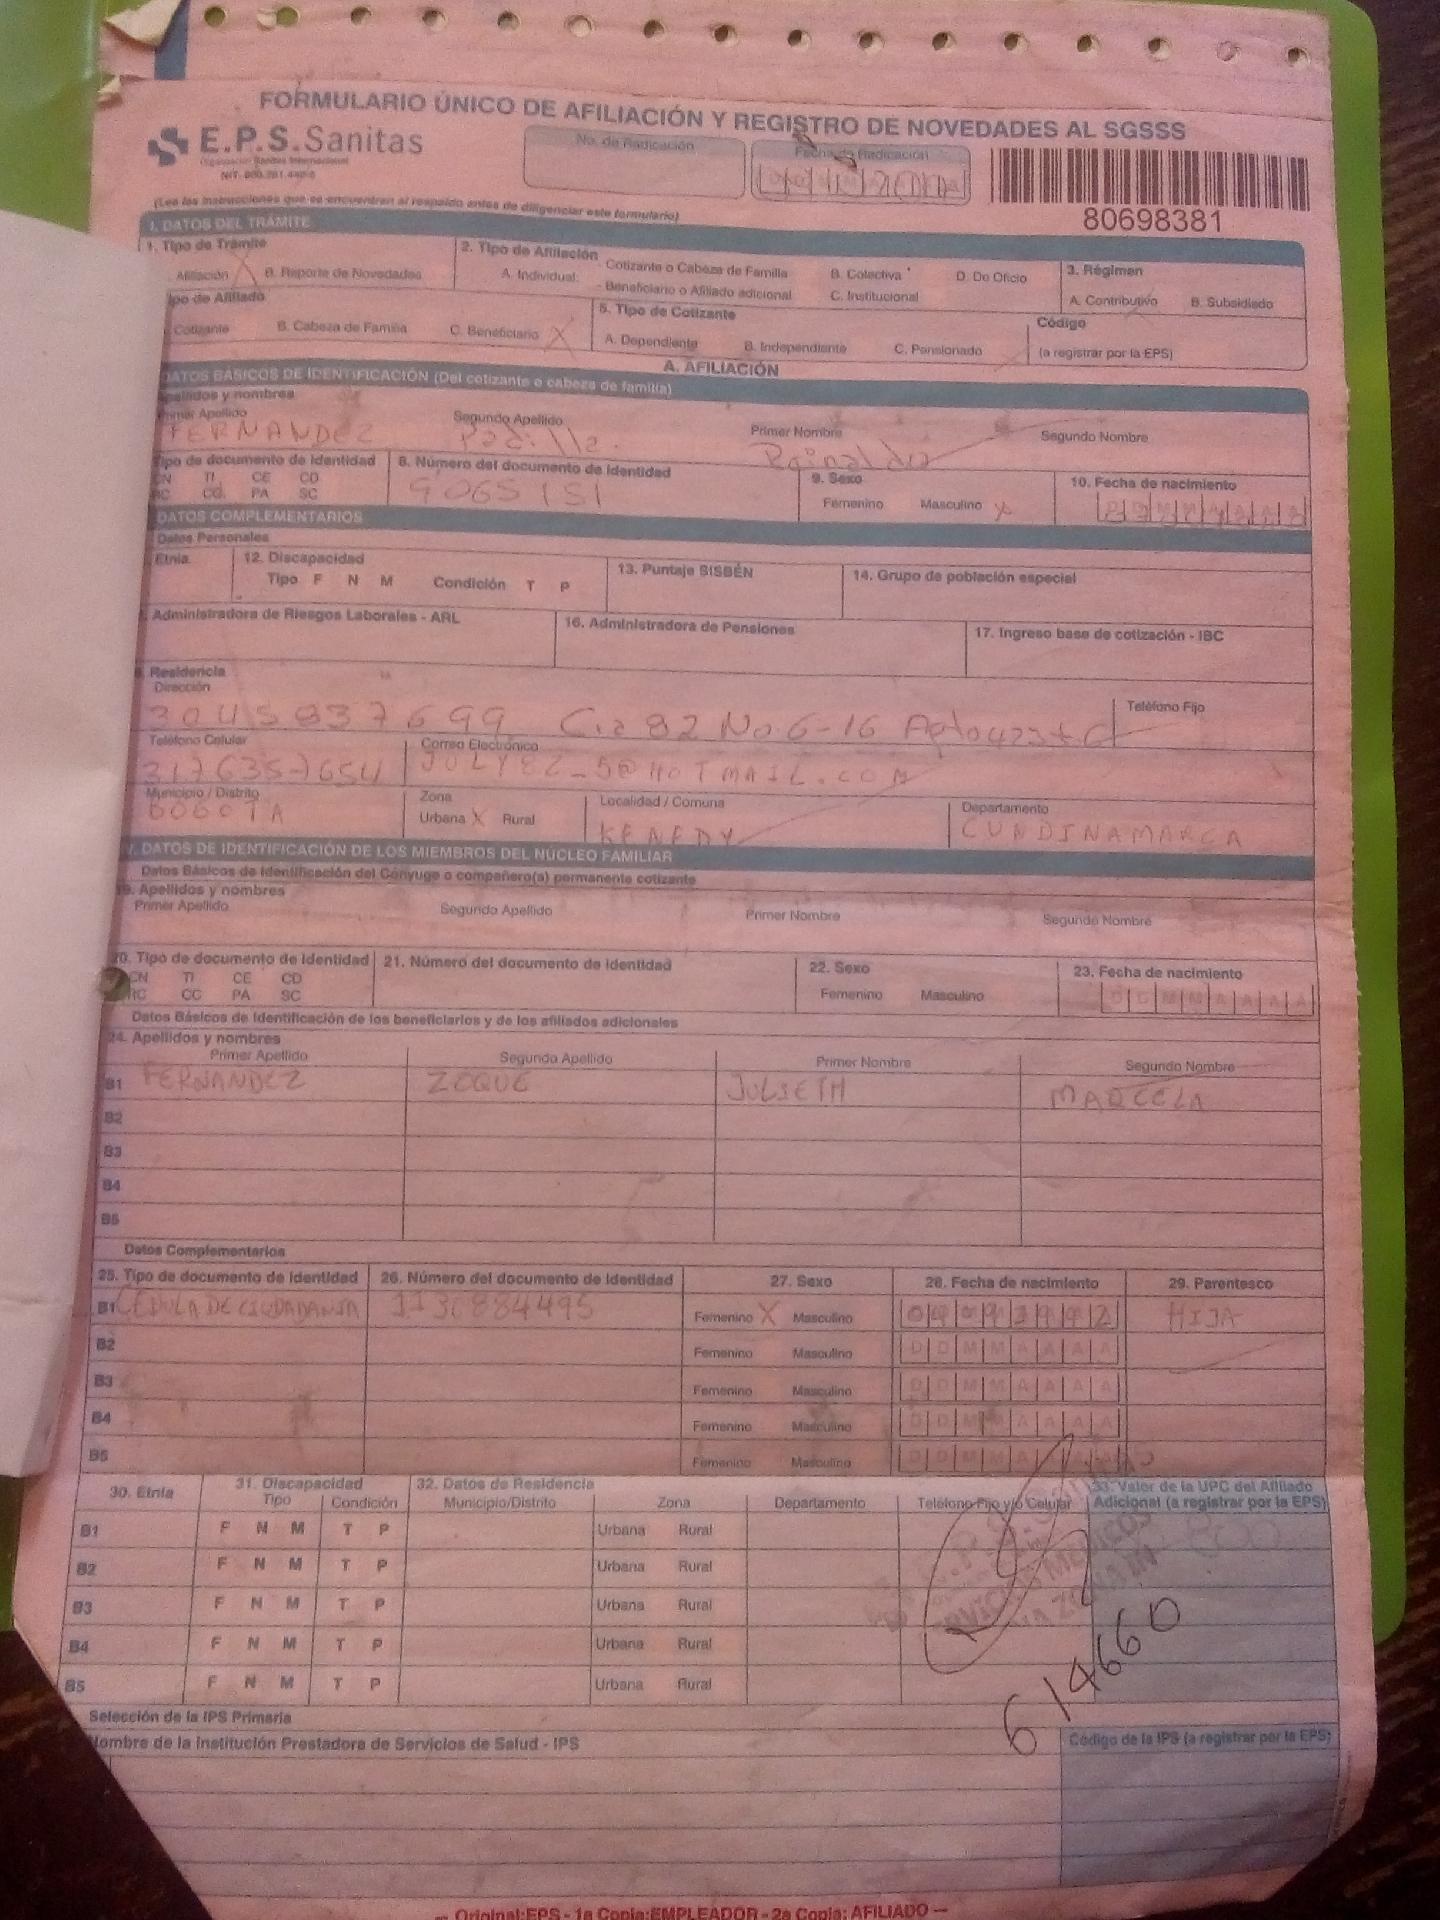 FORMULARIO ÚNICO DE AFILIACIÓN Y REGISTRO DE NOVEDADES AL SGSSS
E.P.S. Sanitas
No. de Radicación
Fecha de Radicación
80698381
(Lea las instrucciones que se encuentran al respaldo antes de diligenciar este formulario)
I. DATOS DEL TRÁMITE
1. Tipo de Trámite
Afiliación X B. Reporte de Novedades
2. Tipo de Afiliación
A. Individual: - Cotizante o Cabeza de Familia
- Beneficiario o Afiliado adicional
B. Colectiva
C. Institucional
D. De Oficio
3. Régimen
A. Contributivo B. Subsidiado
ipo de Afiliado
Cotizante B. Cabeza de Familia C. Beneficiario X
5. Tipo de Cotizante
A. Dependiente B. Independiente C. Pensionado
Código
(a registrar por la EPS)
A. AFILIACIÓN
DATOS BÁSICOS DE IDENTIFICACIÓN (Del cotizante o cabeza de familia)
Apellidos y nombres
Primer Apellido Segundo Apellido Primer Nombre Segundo Nombre
FERNANDEZ Padilla
Tipo de documento de identidad
CN TI CE CD
RC CC PA SC
8. Número del documento de identidad
9065151
9. Sexo
Femenino Masculino X
10. Fecha de nacimiento
DATOS COMPLEMENTARIOS
Datos Personales
Etnia
12. Discapacidad
Tipo F N M Condición T P
13. Puntaje SISBÉN
14. Grupo de población especial
Administradora de Riesgos Laborales - ARL
16. Administradora de Pensiones
17. Ingreso base de cotización - IBC
Residencia
Dirección
Teléfono Fijo
No. 6-16
Teléfono Celular
Correo Electrónico
3176357654 JULY82_5@HOTMAIL.COM
Municipio / Distrito
BOGOTA
Zona
Urbana X Rural
Localidad / Comuna
KENEDY
Departamento
CUNDINAMARCA
. DATOS DE IDENTIFICACIÓN DE LOS MIEMBROS DEL NÚCLEO FAMILIAR
Datos Básicos de Identificación del Cónyuge o compañero(a) permanente cotizante
19. Apellidos y nombres
Primer Apellido Segundo Apellido Primer Nombre Segundo Nombre
20. Tipo de documento de identidad
CN TI CE CD
RC CC PA SC
21. Número del documento de identidad
22. Sexo
Femenino Masculino
23. Fecha de nacimiento
D D M M A A A A
Datos Básicos de Identificación de los beneficiarios y de los afiliados adicionales
24. Apellidos y nombres
Primer Apellido Segundo Apellido Primer Nombre Segundo Nombre
B1 FERNANDEZ ZOQUE JULIETH MARCELA
B2
B3
B4
B5
Datos Complementarios
25. Tipo de documento de identidad 26. Número del documento de identidad 27. Sexo 28. Fecha de nacimiento 29. Parentesco
B1 CEDULA DE CIUDADANIA 1130884495 Femenino X Masculino 04091992 HIJA
B2 Femenino Masculino D D M M A A A A
B3 Femenino Masculino D D M M A A A A
B4 Femenino Masculino D D M M A A A A
B5 Femenino Masculino D D M M A A A A
30. Etnia 31. Discapacidad 32. Datos de Residencia 33. Valor de la UPC del Afiliado
Tipo Condición Municipio/Distrito Zona Departamento Teléfono Fijo y/o Celular Adicional (a registrar por la EPS)
B1 F N M T P Urbana Rural
B2 F N M T P Urbana Rural
B3 F N M T P Urbana Rural
B4 F N M T P Urbana Rural
B5 F N M T P Urbana Rural
614660
Selección de la IPS Primaria
Nombre de la Institución Prestadora de Servicios de Salud - IPS
Código de la IPS (a registrar por la EPS)
— Original: EPS - 1a Copia: EMPLEADOR - 2a Copia: AFILIADO —